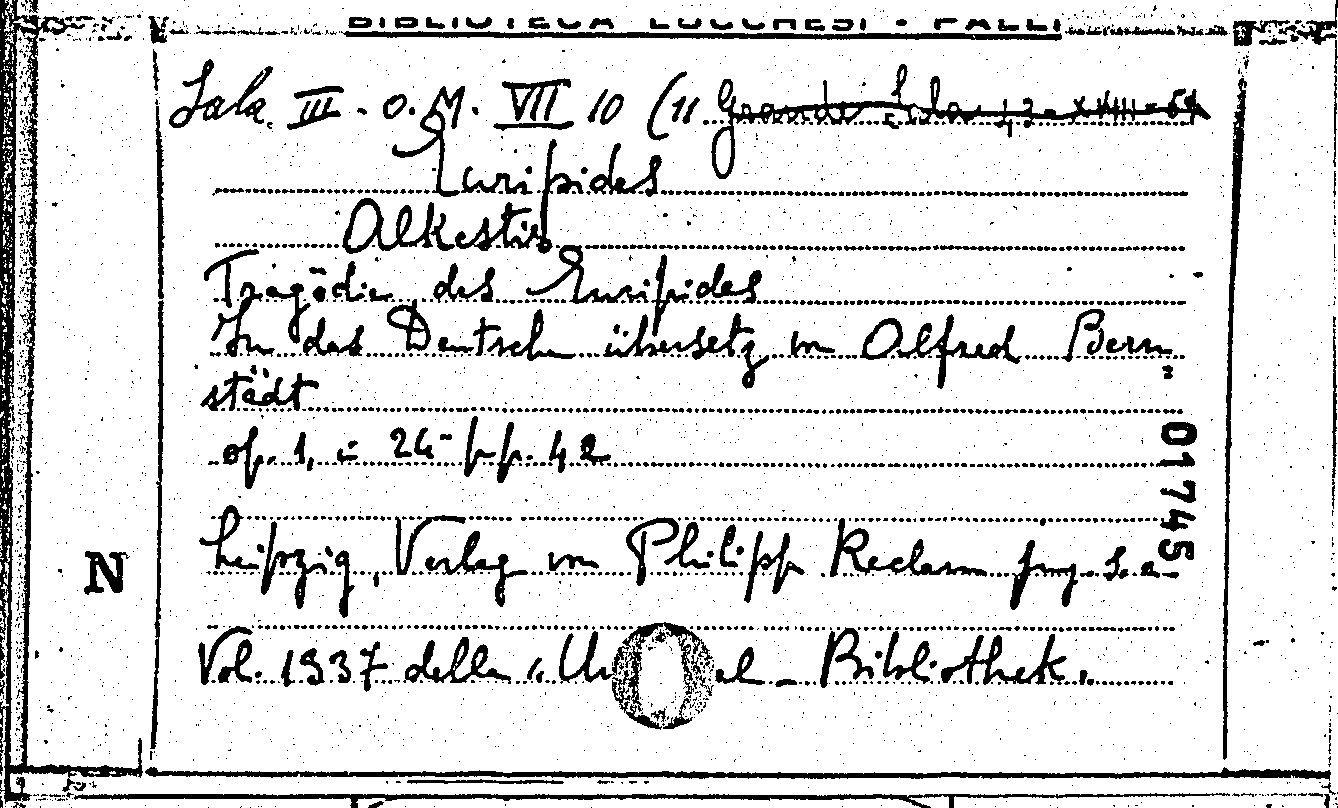 BIBLIOTECA LUCCHESI - PALLI
Sala III - O. M. VII 10 (11 Grande Sala 43 - XXVIII - 64
Euripides
Alkestis
Tragödie des Euripides
In das Deutsche übersetz von Alfred Bern
städt
op. 1, in 24- pp. 42
Leipzig, Verlag von Philipp Reclam jung. s. a.
Vol. 1337 della "Un el - Bibliothek.
N
01745